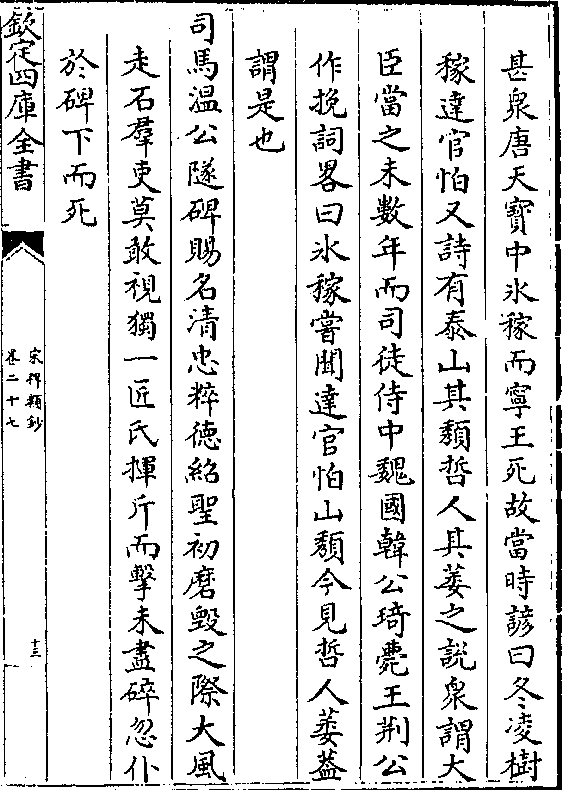 甚衆唐天寳中氷稼而寧王死故當時諺曰冬凌樹
稼達官怕又詩有泰山其頽哲人其萎之説衆謂大
臣當之未數年而司徒侍中魏國韓公琦薨王荆公
作挽詞畧曰氷稼嘗聞達官怕山頽今見哲人萎葢
謂是也
司馬温公隧碑賜名清忠粹德紹聖初磨毁之際大風
走石羣吏莫敢視獨一匠氏揮斤而擊未盡碎忽仆
於碑下而死
欽定四庫全書
宋稗類鈔
卷二十七
十三